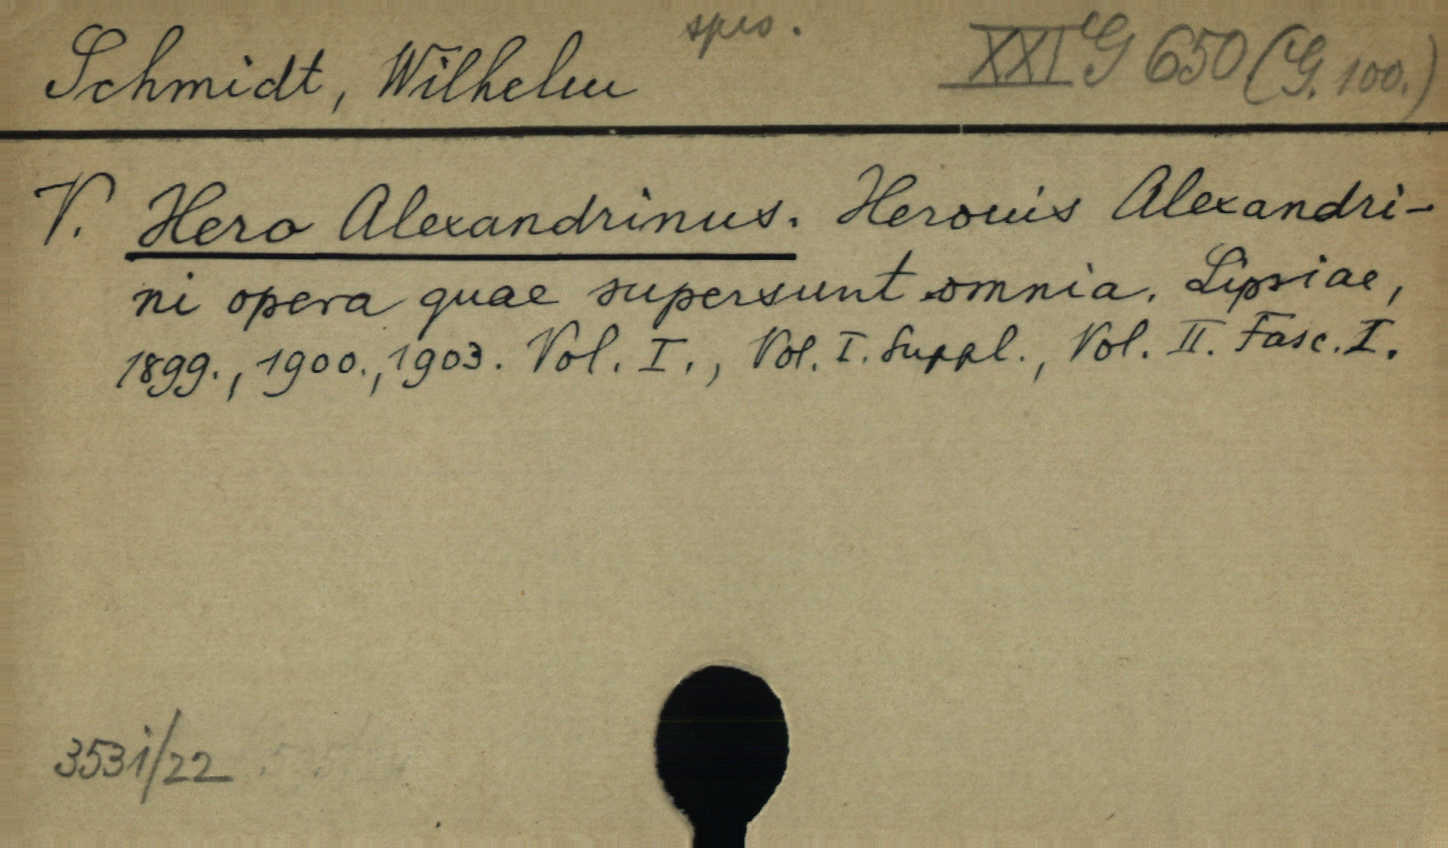 spis.
Schmidt, Wilhelm
XXI G 650 (G. 100.)
V. Hero Alexandrinus. Heronis Alexandri-
ni opera quae supersunt omnia. Lipsiae,
1899., 1900., 1903. Vol. I., Vol. I. Suppl., Vol. II. Fasc. I.
353i/22